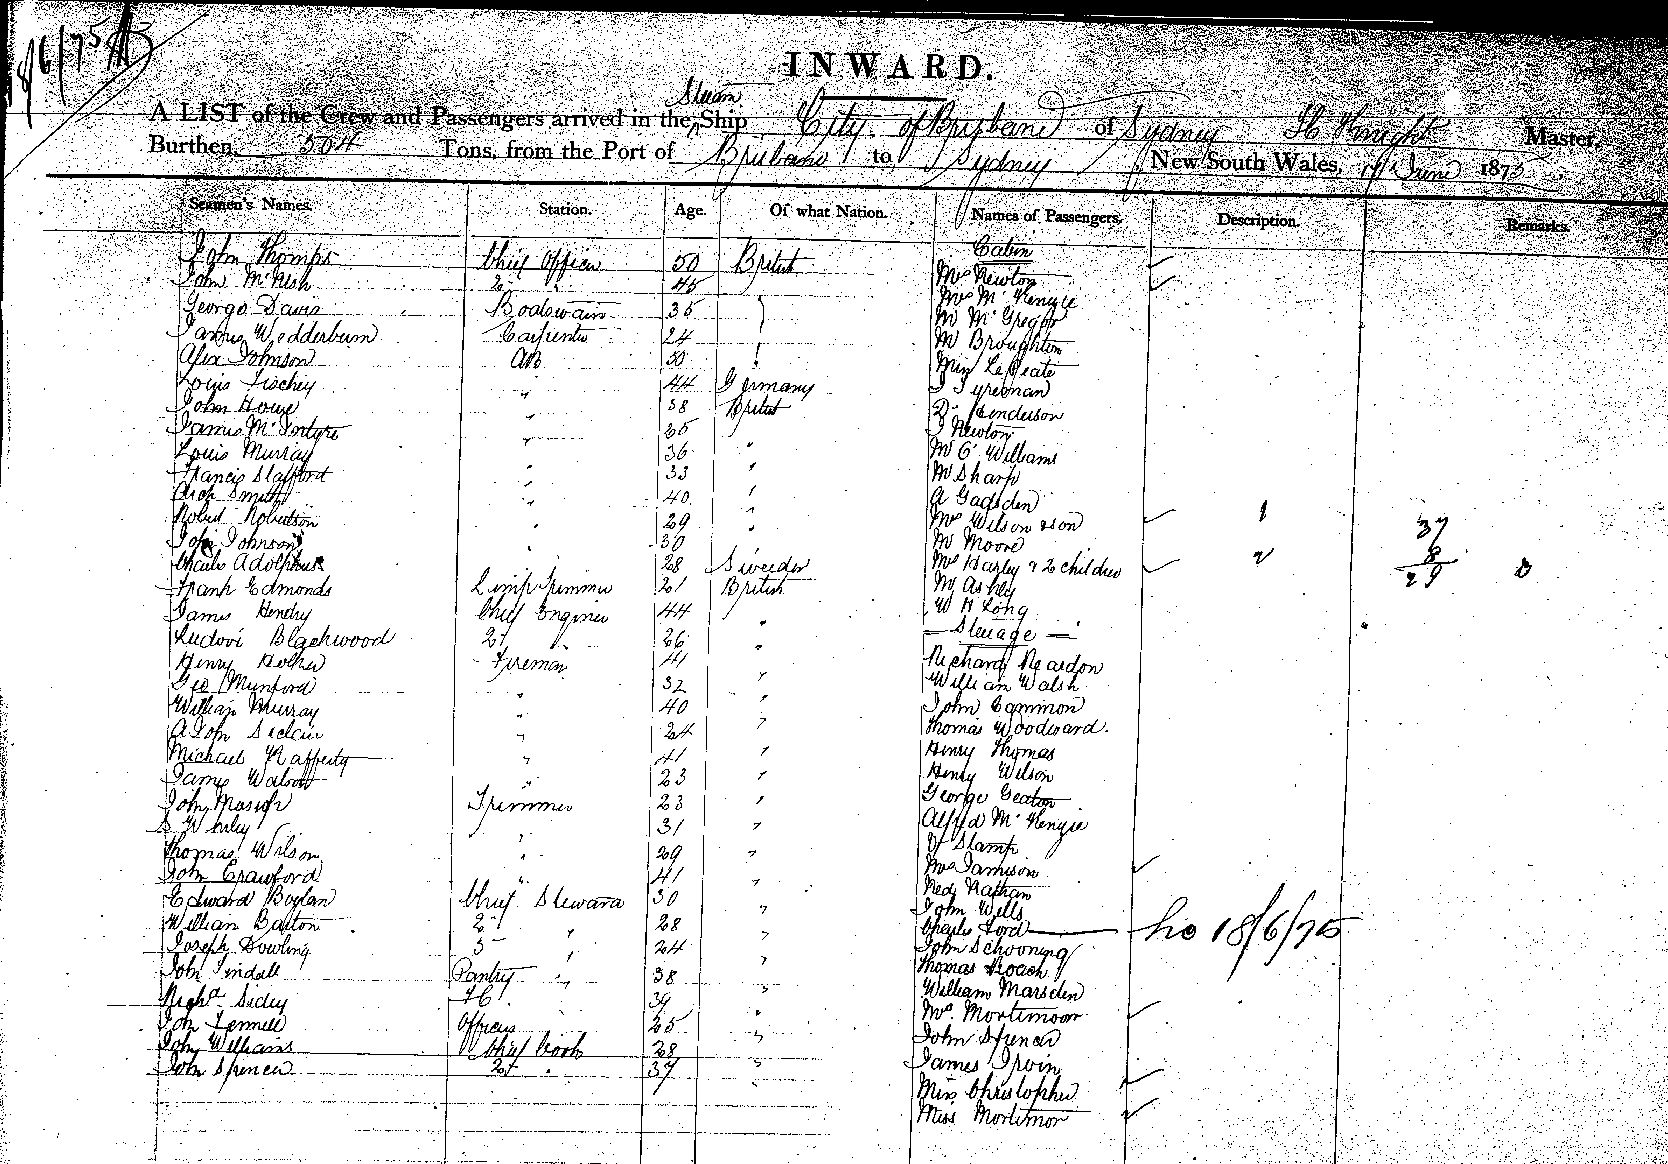 18/6/75
INWARD.
Steam
A LIST of the Crew and Passengers arrived in the Ship City of Brisbane of Sydney H Knight Master.
Burthen 504 Tons, from the Port of Brisbane to Sydney New South Wales, June 1875
Seamen's Names. Station. Age. Of what Nation. Names of Passengers. Description. Remarks.
Cabin
John Thomps Chief Officer 50 British
John McNish 2 " 45 Mrs Newton
George Davis Boatswain 35 Mrs McKenzie
James Wedderburn Carpenter 24 Mr McGregor
Alex Johnson AB 30 Mr Broughton
Louis " 44 Germany Miss
John Howe " 38 British
James McIntyre " 35 Henderson
Louis Murray " 36 " J Newton
Francis Stafford " 33 " Mr G Williams
Arch Smith " 40 " Mr Sharp
Robert Robertson " 29 " A Gagsden
John Johnson " 30 Mrs Wilson & son 1 37
Charles Adolphus 28 Sweden Mr Moore 8
Frank Edmonds Lamp Trimmer 21 British Mrs Harley & 2 children 2 29
James Hendry Chief Engineer 44 Mr Ashly
Ludovi Blackwood 2d 26 " W H Long
Henry Fireman 41 " Steerage
Geo Munford " 32 " Richard Reardon
William Murray " 40 " William Walsh
A John Sinclair " 24 " John Cammion
Michael Rafferty " 41 " Thomas Woodward.
James Watson " 23 " Henry Thomas
John Trimmer 23 " Henry Wilson
S " 31 " George Geaton
Thomas Wilson " 29 " Alfred McKenzie
John Crawford " 41 " Stamp
Edward Boylan Chief Steward 30 Mrs Jamison
William Barton 2 " 28 " Ned Nathan
Joseph Dowling 3 " 24 " John Wells
John Tindale Pantry " 38 " Charles Ford 18/6/75
Richd Sidey 39 " John Schooning
John Fennell Officers 25 " Thomas Roach
John Williams Chief Cook 28 " William Marsden
John Spencer 2d " 37 " Mrs Mortimoor
John Spencer
James Irvin
Miss Christopher
Miss Mortimor